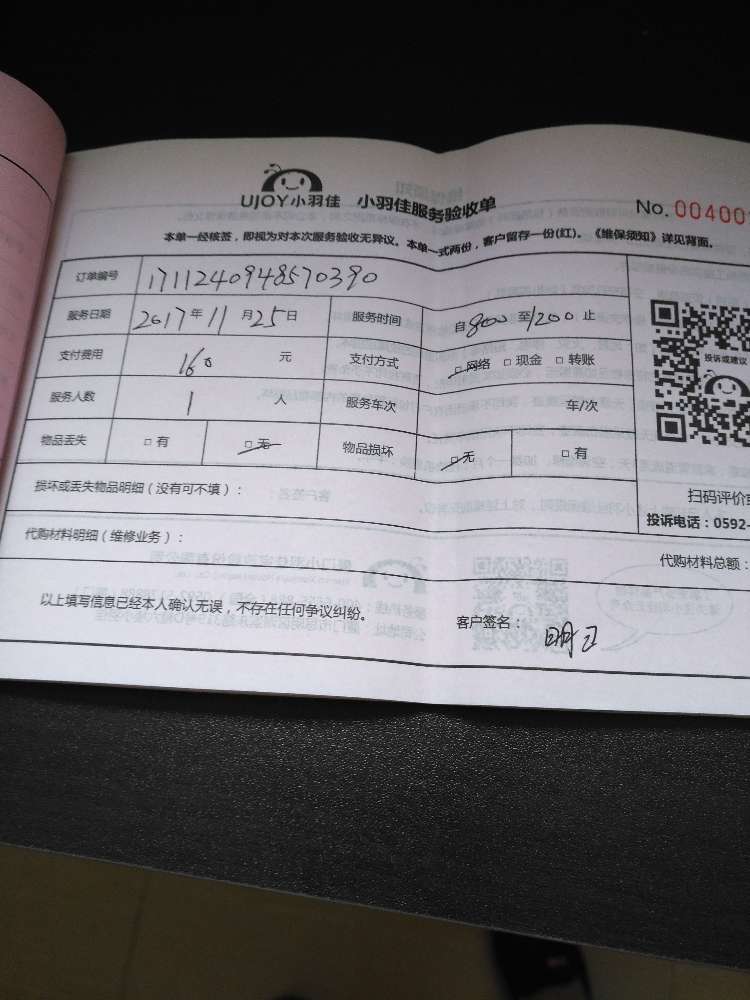 UJOY小羽佳 小羽佳服务验收单 No. 00400
本单一经核签,即视为对本次服务验收无异议。本单一式两份,客户留存一份(红)。《维保须知》详见背面。
订单编号 1711240948570390
服务日期 2017年11月25日 服务时间 自800至1200止
支付费用 160 元 支付方式 □网络 □现金 □转账
服务人数 1 人 服务车次 车/次
投诉或建议
物品丢失 □有 □无 物品损坏 □无 □有
损坏或丢失物品明细(没有可不填): 扫码评价
投诉电话:0592-
代购材料明细(维修业务): 代购材料总额:
以上填写信息已经本人确认无误,不存在任何争议纠纷。 客户签名: